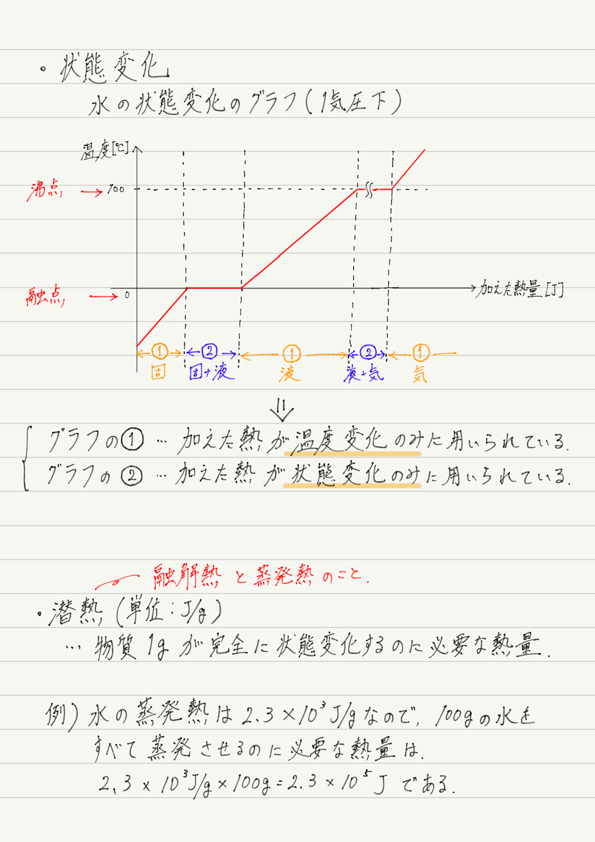 ・状態変化
水の状態変化のグラフ(1気圧下)
温度[℃]
沸点 → 100
融点 → 0
加えた熱量[J]
① ② ① ② ①
固 固+液 液 液+気 気
⇓
グラフの① … 加えた熱が温度変化のみに用いられている.
グラフの② … 加えた熱が状態変化のみに用いられている.
融解熱と蒸発熱のこと.
・潜熱(単位:J/g)
… 物質1gが完全に状態変化するのに必要な熱量.
例)水の蒸発熱は2.3×10³J/gなので,100gの水を
すべて蒸発させるのに必要な熱量は.
2.3×10³J/g×100g=2.3×10⁵J である.